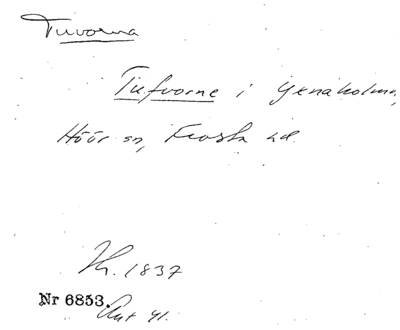 Tuvorna
Tufvorne i Yxnaholma,
Höör sn, Frosta hd.
Kr. 1837
Nr 6853.
Ant 41.